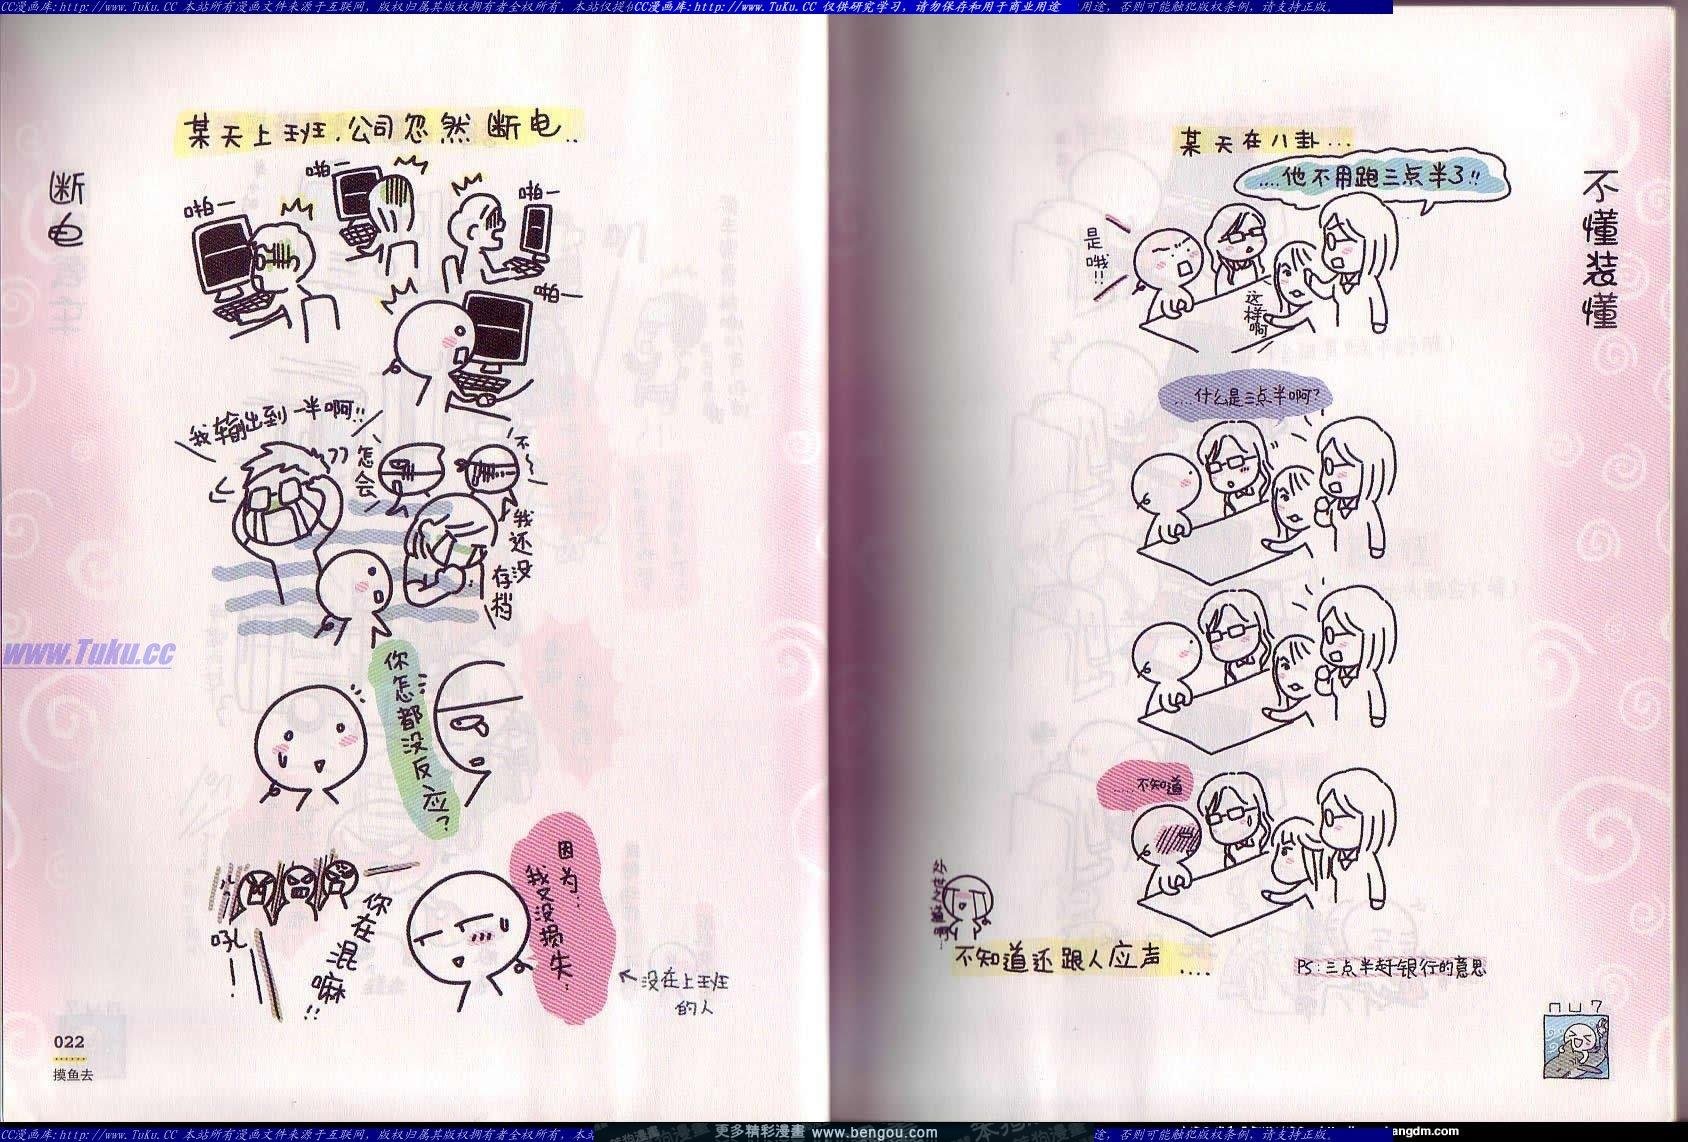 CC漫画库:http://www.TuKu.CC 本站所有漫画文件来源于互联网，版权归属其版权拥有者全权所有，本站仅提供
CC漫画库:http://www.TuKu.CC 仅供研究学习，请勿保存和用于商业用途
用途，否则可能触犯版权条例，请支持正版。
断电
某天上班．公司忽然断电..
啪一
啪一
啪一
啪一
我输出到一半啊!!
怎会
不~
我还没存档
www.Tuku.cc
你怎都没反应?
因为...我又没损失.
吼!
你在混嘛!!
←没在上班的人
022
摸鱼去
不懂装懂
某天在八卦...
....他不用跑三点半了!!
是哦!!
这样啊
....什么是三点半啊?
.....不知道
不知道还跟人应声....
PS:三点半赶银行的意思
CC漫画库:http://www.TuKu.CC 本站所有漫画文件来源于互联网，版权归属其版权拥有者全权所有，本
更多精彩漫畫 www.bengou.com
途，否则可能触犯版权条例，请支持正版。